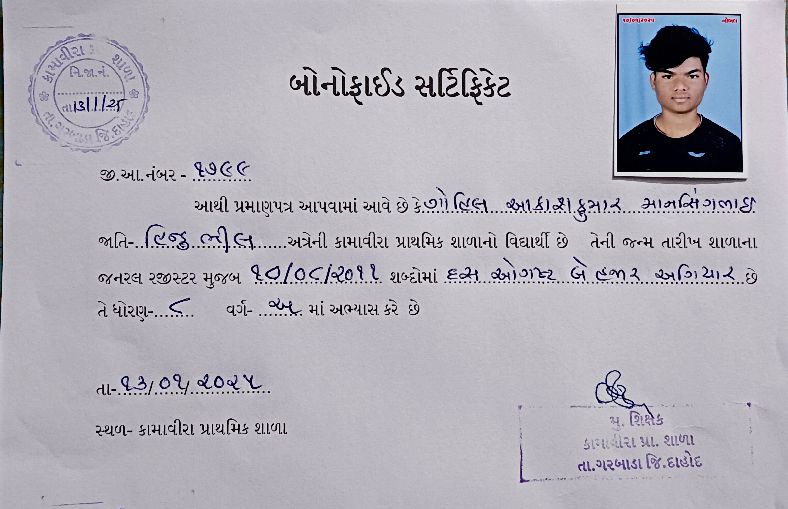 કામાવીરા પ્રા. શાળા
નિ.જા.નં.
તા.13/1/25
તા.ગરબાડા જિ.દાહોદ
૧૦/૦૧/૨૦૨૫
બોનોફાઈડ સર્ટિફિકેટ
જી.આ.નંબર - ૧૭૯૯
આથી પ્રમાણપત્ર આપવામાં આવે છે કે ગોહિલ આકાશકુમાર માનસિંગભાઈ
જાતિ- હિન્દુ ભીલ અત્રેની કામાવીરા પ્રાથમિક શાળાનો વિદ્યાર્થી છે તેની જન્મ તારીખ શાળાના
જનરલ રજીસ્ટર મુજબ ૧૦/૦૮/૨૦૧૧ શબ્દોમાં દસ ઓગષ્ટ બે હજાર અગિયાર છે
તે ધોરણ- ૮ વર્ગ- અ માં અભ્યાસ કરે છે
તા- ૧૩/૦૧/૨૦૨૫
સ્થળ- કામાવીરા પ્રાથમિક શાળા
મુ. શિક્ષક
કામાવીરા પ્રા. શાળા
તા.ગરબાડા જિ.દાહોદ